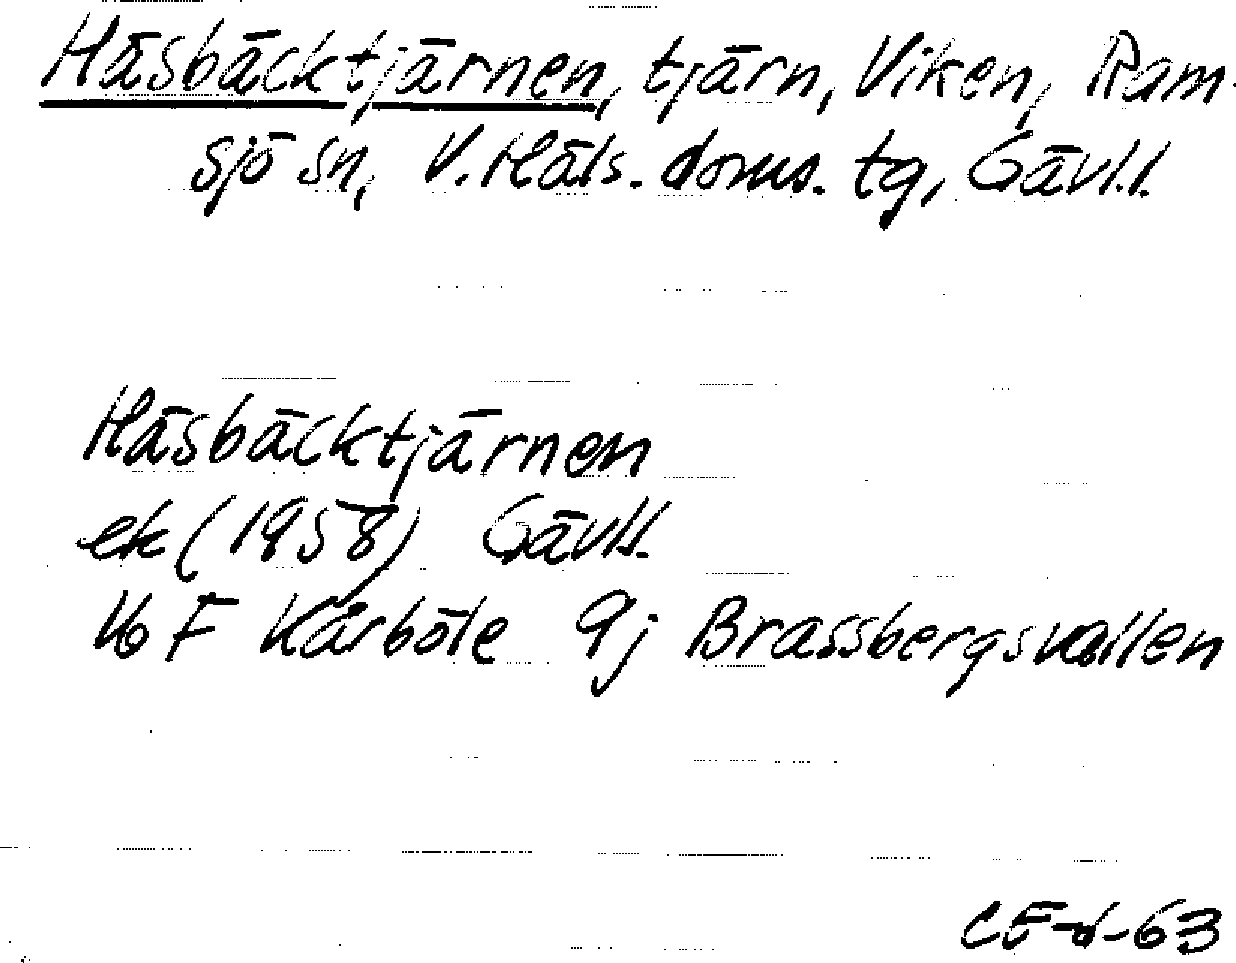 Häsbäcktjärnen, tjärn, Viken, Ram-
sjö sn, V. Häls. doms. tg, Gävl.l.
Häsbäcktjärnen
ek (1958) Gävl.l.
16 F Kårböle 9j Brassbergsvallen
CE-d-63